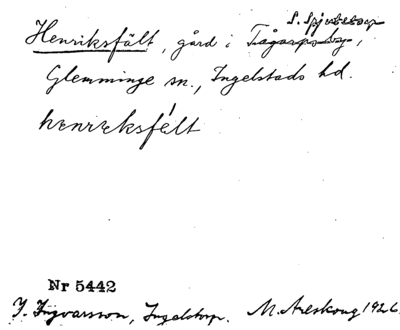 S. Spjutstorp
Henriksfält, gård i Tågarps by,
Glemminge sn., Ingelstads hd.
henrɛksfélt
Nr 5442
J. Ingvarsson, Ingelstorp. M. Areskoug 1926.